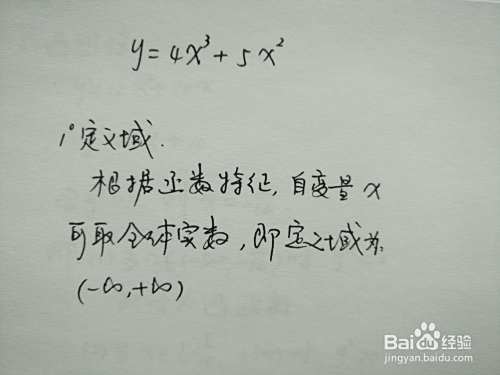 y=4x³+5x²
1°定义域.
根据函数特征,自变量x
可取全体实数,即定义域为:
(-∞,+∞)
Baidu经验
jingyan.baidu.com